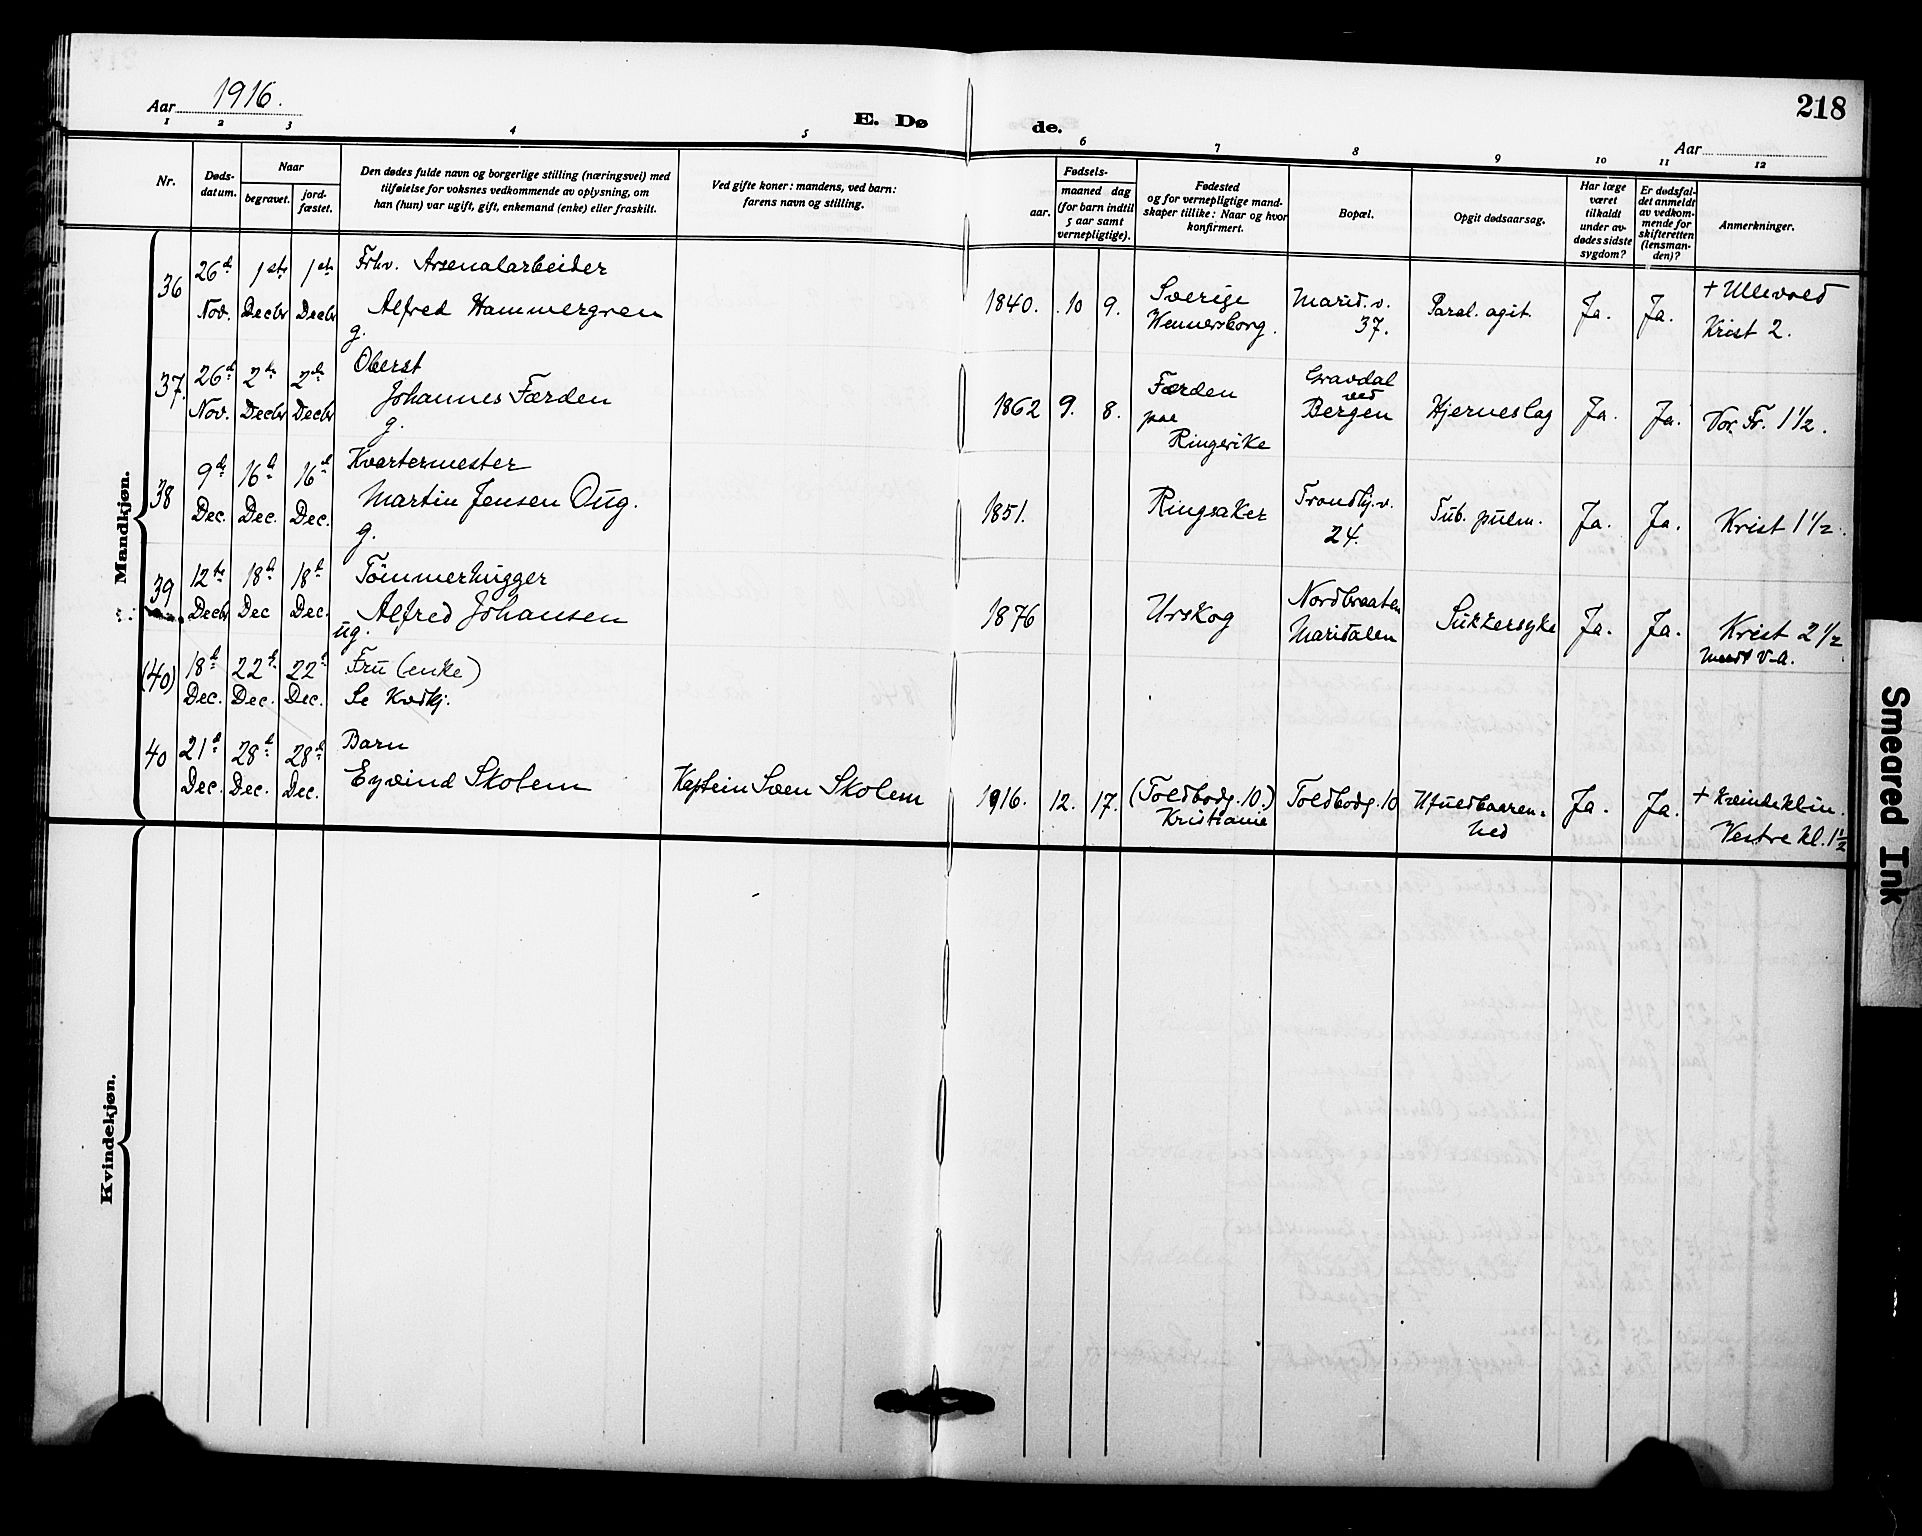 Aar 1916.
E. Døde.
218
Aar
1 2 3 4 5 6 7 8 9 10 11 12
Nr.
Døds-
datum.
Naar
begravet.
jord-
fæstet.
Den dødes fulde navn og borgerlige stilling (næringsvei) med
tilføielse for voksnes vedkommende av oplysning, om
han (hun) var ugift, gift, enkemand (enke) eller fraskilt.
Ved gifte koner: mandens, ved barn:
farens navn og stilling.
Fødsels-
aar.
maaned dag
(for barn indtil
5 aar samt
vernepligtige).
Fødested
og for vernepligtige mand-
skaper tillike: Naar og hvor
konfirmert.
Bopæl.
Opgit dødsaarsag.
Har læge
været
tilkaldt
under av-
dødes sidste
sygdom?
Er dødsfal-
det anmeldt
av vedkom-
mende for
skifteretten
(lensman-
den)?
Anmerkninger.
Mandkjøn.
36
26d
Nov.
1ste
Decbr
1ste
Decbr
Frhv. Arsenalarbeider
Alfred Hammergren
g.
1840.
10
9.
Sverige
Wennersborg.
Marid.v.
37.
Paral. agit.
Ja.
Ja.
+ Ullevold
Krist 2.
37.
26d
Nov.
2de
Decbr
2de
Decbr
Oberst
Johannes Færden
g.
1862
9.
8.
Færden
paa
Ringerike
Gravdal
ved
Bergen
Hjerneslag
Ja.
Ja.
Vor Fr. 1 1/2.
38
9de
Dec.
16d
Dec.
16d
Dec.
Kvartermester
Martin Jensen Oug.
g.
1851.
Ringsaker
Trondhj.v.
24.
Tub. pulm.
Ja.
Ja.
Krist 1 1/2.
39
12te
Decbr
18d
Dec
18d
Dec.
Tömmerhugger
Alfred Johansen
ug.
1876
Urskog
Nordbraaten
Maridalen
Sukkersyke
Ja.
Ja.
Krist 2 1/2
(40)
18d
Dec.
22d
Dec.
22d
Dec.
Fru (enke)
Se Kvdkj.
40
21d
Dec.
28d
Dec.
28d
Dec.
Barn
Eyvind Skolem
Kaptein Sven Skolem
1916.
12.
17.
(Toldbodg. 10.)
Kristiania
Toldbodg. 10
Ufuldbaaren-
hed
Ja.
Ja.
+ Kvindeklin.
Vestre Kl. 1 1/2
Kvindekjøn.
Smeared Ink